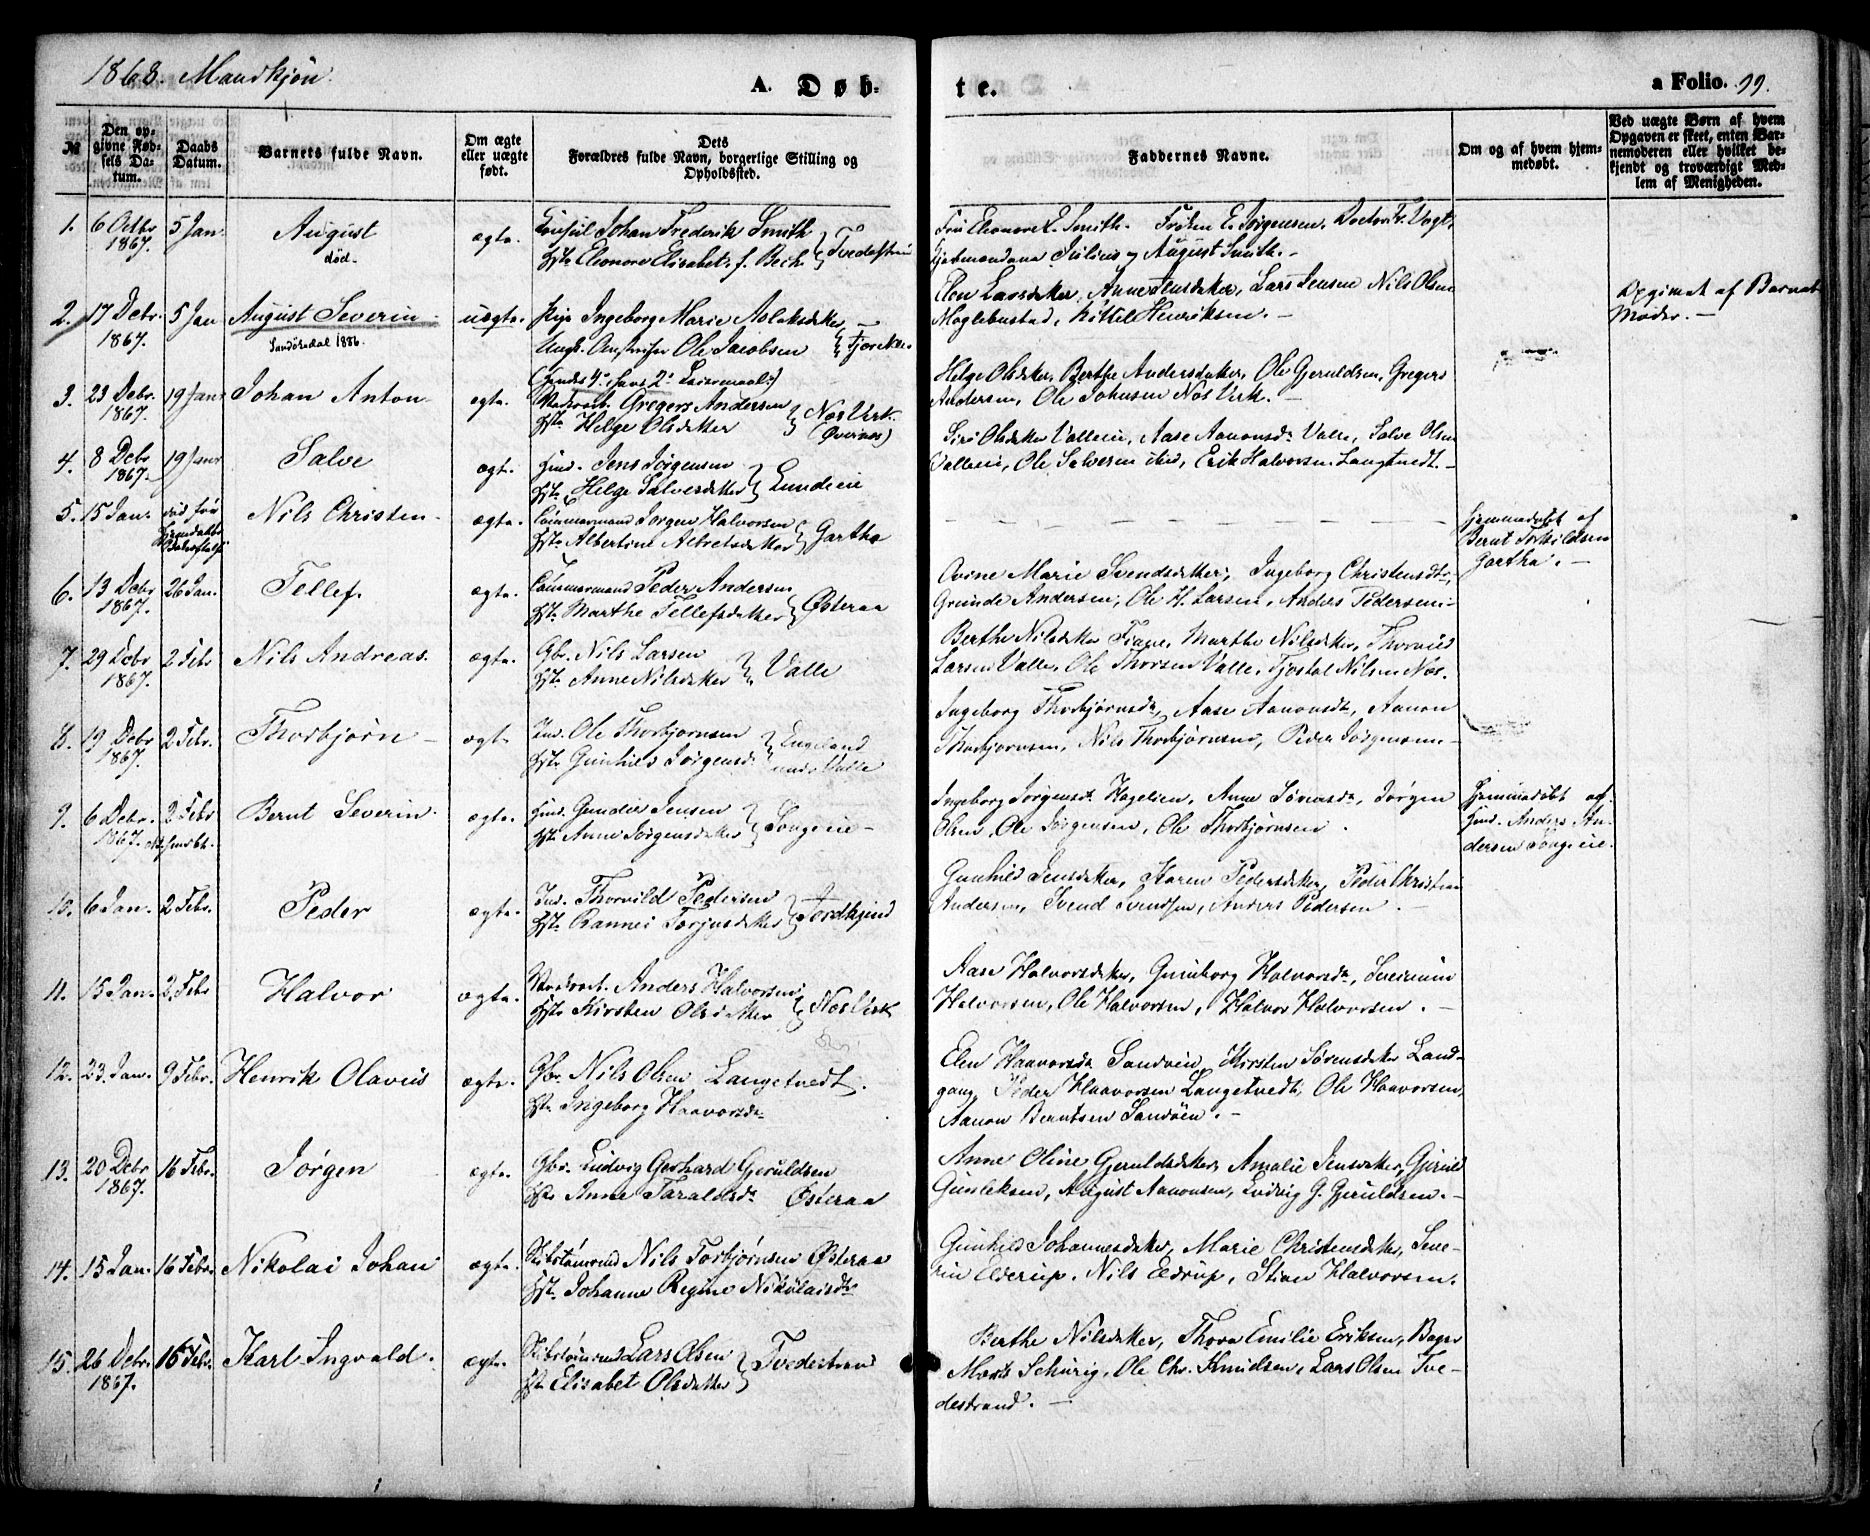 1868. Mandkjøn.
A. Døb-
te.
a Folio. 99.
№
Den op-
givne Fød-
sels Da-
tum.
Daabs
Datum.
Barnets fulde Navn.
Om ægte
eller uægte
født.
Dets
Forældres fulde Navn, borgerlige Stilling og
Opholdssted.
Faddernes Navne.
Om og af hvem hjem-
medøbt.
Ved uægte Børn af hvem
Opgaven er skeet, enten Bar-
nemoderen eller hvilket be-
kjendt og troværdigt Med-
lem af Menigheden.
1. 6 Octbr 1867. 5 Jan. August død. ægte.
Consul Johan Frederik Smith
Hst. Eleonore Elisabet f. Bech } Tvedestrand
Fru Eleonore E. Smith. Frøken E. Jørgensen, Doctor Fr. Vogt,
Kjøbmændene Julius og August Smith.
2. 17 Debr. 1867. 5 Jan August Severin Sandøkedal 1886. uægte.
Pige Ingeborg Marie Aslaksdatter,
Ungk. Ole Jacobsen
Elen Larsdatter, Anne Jensdatter, Lars Jensen Nils Olsen
Møglebustad, Kittel Henriksen.
Opgivet af Barnets
Moder.
3. 23 Debr. 1867. 19 Jan Johan Anton ægte.
Gregers Andersen
Hst. Helge Olsdatter } Næs Verk
Helge Olsdatter, Berthe Andersdatter, Ole Geruldsen, Gregers
Andersen, Ole Johnsen Næs Verk.
4. 8 Debr 1867. 19 Jan Salve ægte.
Huusd. Jens Jørgensen
Hst. Helge Salvesdatter } Lundeeie
Siri Olsdatter Valleeie, Aase Aanonsdr Valle, Salve Olsen
Valleeie, Ole Salvesen ibid, Erik Halvorsen Langtvedt.
5. 15 Jan. Nils Christen ægte.
Tømmermand Jørgen Halvorsen
Hst. Albertine Albretsdatter } Gartha
Hjemmedøbt af
Bernt Torkildsen
Gartha.
6. 13 Debr 1867. 26 Jan. Tellef. ægte.
Tømmermand Peder Andersen
Hst. Marthe Tellefsdatter } Østeraa
Ovine Marie Svendsdatter, Ingeborg Christensdtr,
Grunde Andersen, Ole H. Larsen, Anders Pedersen.
7. 29 Debr 1867. 2 Febr Nils Andreas. ægte.
Gbr. Nils Larsen
Hst. Anne Nilsdatter } Valle
Berthe Nilsdatter Fiane, Marthe Nilsdatter, Thorvild
Larsen Valle, Ole Thorsen Valle, Tjøstol Nilsen Næs.
8. 19 Debr 1867. 2 Febr. Thorbjørn ægte
Ind. Ole Thorbjørnsen
Hst. Gunhild Jørgensd. } Engeland under Valle
Ingeborg Thorbjørnsdr, Aase Aanonsdr, Aanon
Thorbjørnsen, Nils Thorbjørnsen, Peder Jørgensen.
9. 6 Debr. 1867. 2 Febr Bernt Severin. ægte.
Huusd. Gunder Jensen
Hst. Anne Jørgensdatter } Songeeie
Ingeborg Jørgensdr Hagelien, Anne Sørensdr, Jørgen
Olsen, Ole Jørgensen, Ole Thorbjørnsen.
Hjemmedøbt af
Huusd. Anders An-
dersen Songeeie.
10. 6 Jan. 2 Febr. Peder ægte.
Ind. Thorvild Pedersen
Hst. Rannei Torjusdatter } Jordkjend
Gunhild Jensdatter, Karen Pedersdatter, Peder Christian
Andersen, Svend Svendsen, Anders Pedersen.
11. 15 Jan. 2 Febr Halvor ægte.
Anders Halvorsen
Hst. Kirsten Olsdatter } Næs Verk
Aase Halvorsdatter, Gunborg Halvorsdr, Sveinung
Halvorsen, Ole Halvorsen, Halvor Halvorsen.
12. 23 Jan. 9 Febr. Henrik Olavus ægte.
Gbr. Nils Olsen Langetvedt.
Hst. Ingeborg Haavorsdr
Elen Haavorsdr Sandveie, Kirsten Sørensdatter Land-
gang, Peder Haavorsen Langetvedt, Ole Haavorsen,
Aanon Berntsen Sandøen.
13. 20 Debr 1867. 16 Febr. Jørgen ægte.
Gbr. Ludvig Gerhard Geruldsen
Hst. Anne Taraldsdr Østeraa
Anne Oline Gjeruldsdatter, Amalie Jensdatter, Gjeruld
Gunleksen, August Aanonsen, Ludvig G. Gjeruldsen.
14. 15 Jan. 16 Febr. Nikolai Johan ægte.
Skibstømmermd Nils Torbjørnsen Østeraa
Hst. Johanne Regine Nikolaisdr
Gunhild Johannesdatter, Marie Christensdatter, Seve-
rin Elderup, Nils Eldrup, Stian Halvorsen.
15. 26 Debr. 1867. 16 Febr. Karl Ingvald. ægte.
Skibstømmermd Lars Olsen
Hst. Elisabet Olsdatter } Tvedestrand
Berthe Nilsdatter, Thora Emilie Eriksen, Bager
Morits Schurig, Ole Chr. Knudsen, Lars Olsen Tve-
destrand.